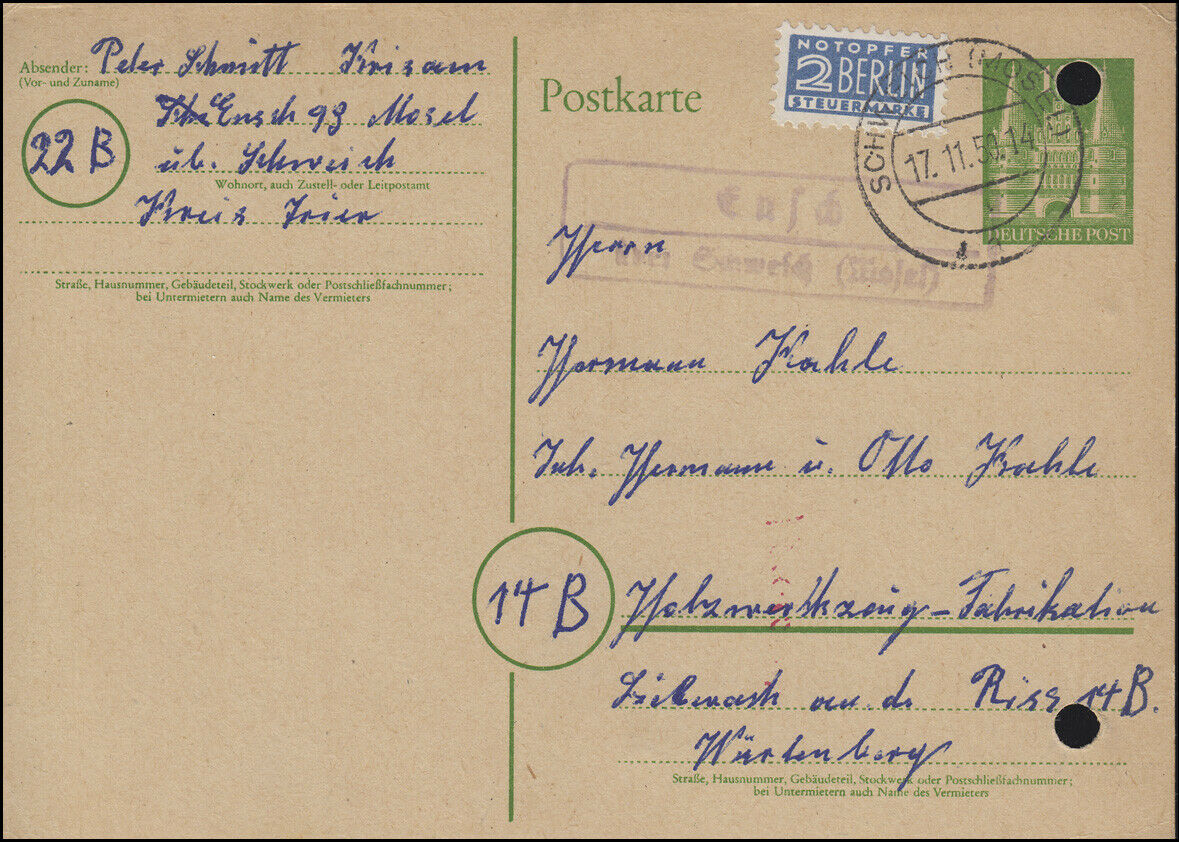 Absender: Peter Schmitt Krisam
(Vor- und Zuname)
Ensch 93 Mosel
22 B
üb. Schweich
Wohnort, auch Zustell- oder Leitpostamt
Kreis Trier
Straße, Hausnummer, Gebäudeteil, Stockwerk oder Postschließfachnummer;
bei Untermietern auch Name des Vermieters
Postkarte
NOTOPFER
2 BERLIN
STEUERMARKE
SCHWEICH (MOSEL)
17.11.50.14
DEUTSCHE POST
Ensch
über Schweich (Mosel)
Herrn
Hermann Kahle
Inh. Hermann u. Otto Kahle
14 B
Holzwerkzeug-Fabrikation
an d. Riss 14 B.
Würtenberg
Straße, Hausnummer, Gebäudeteil, Stockwerk oder Postschließfachnummer;
bei Untermietern auch Name des Vermieters